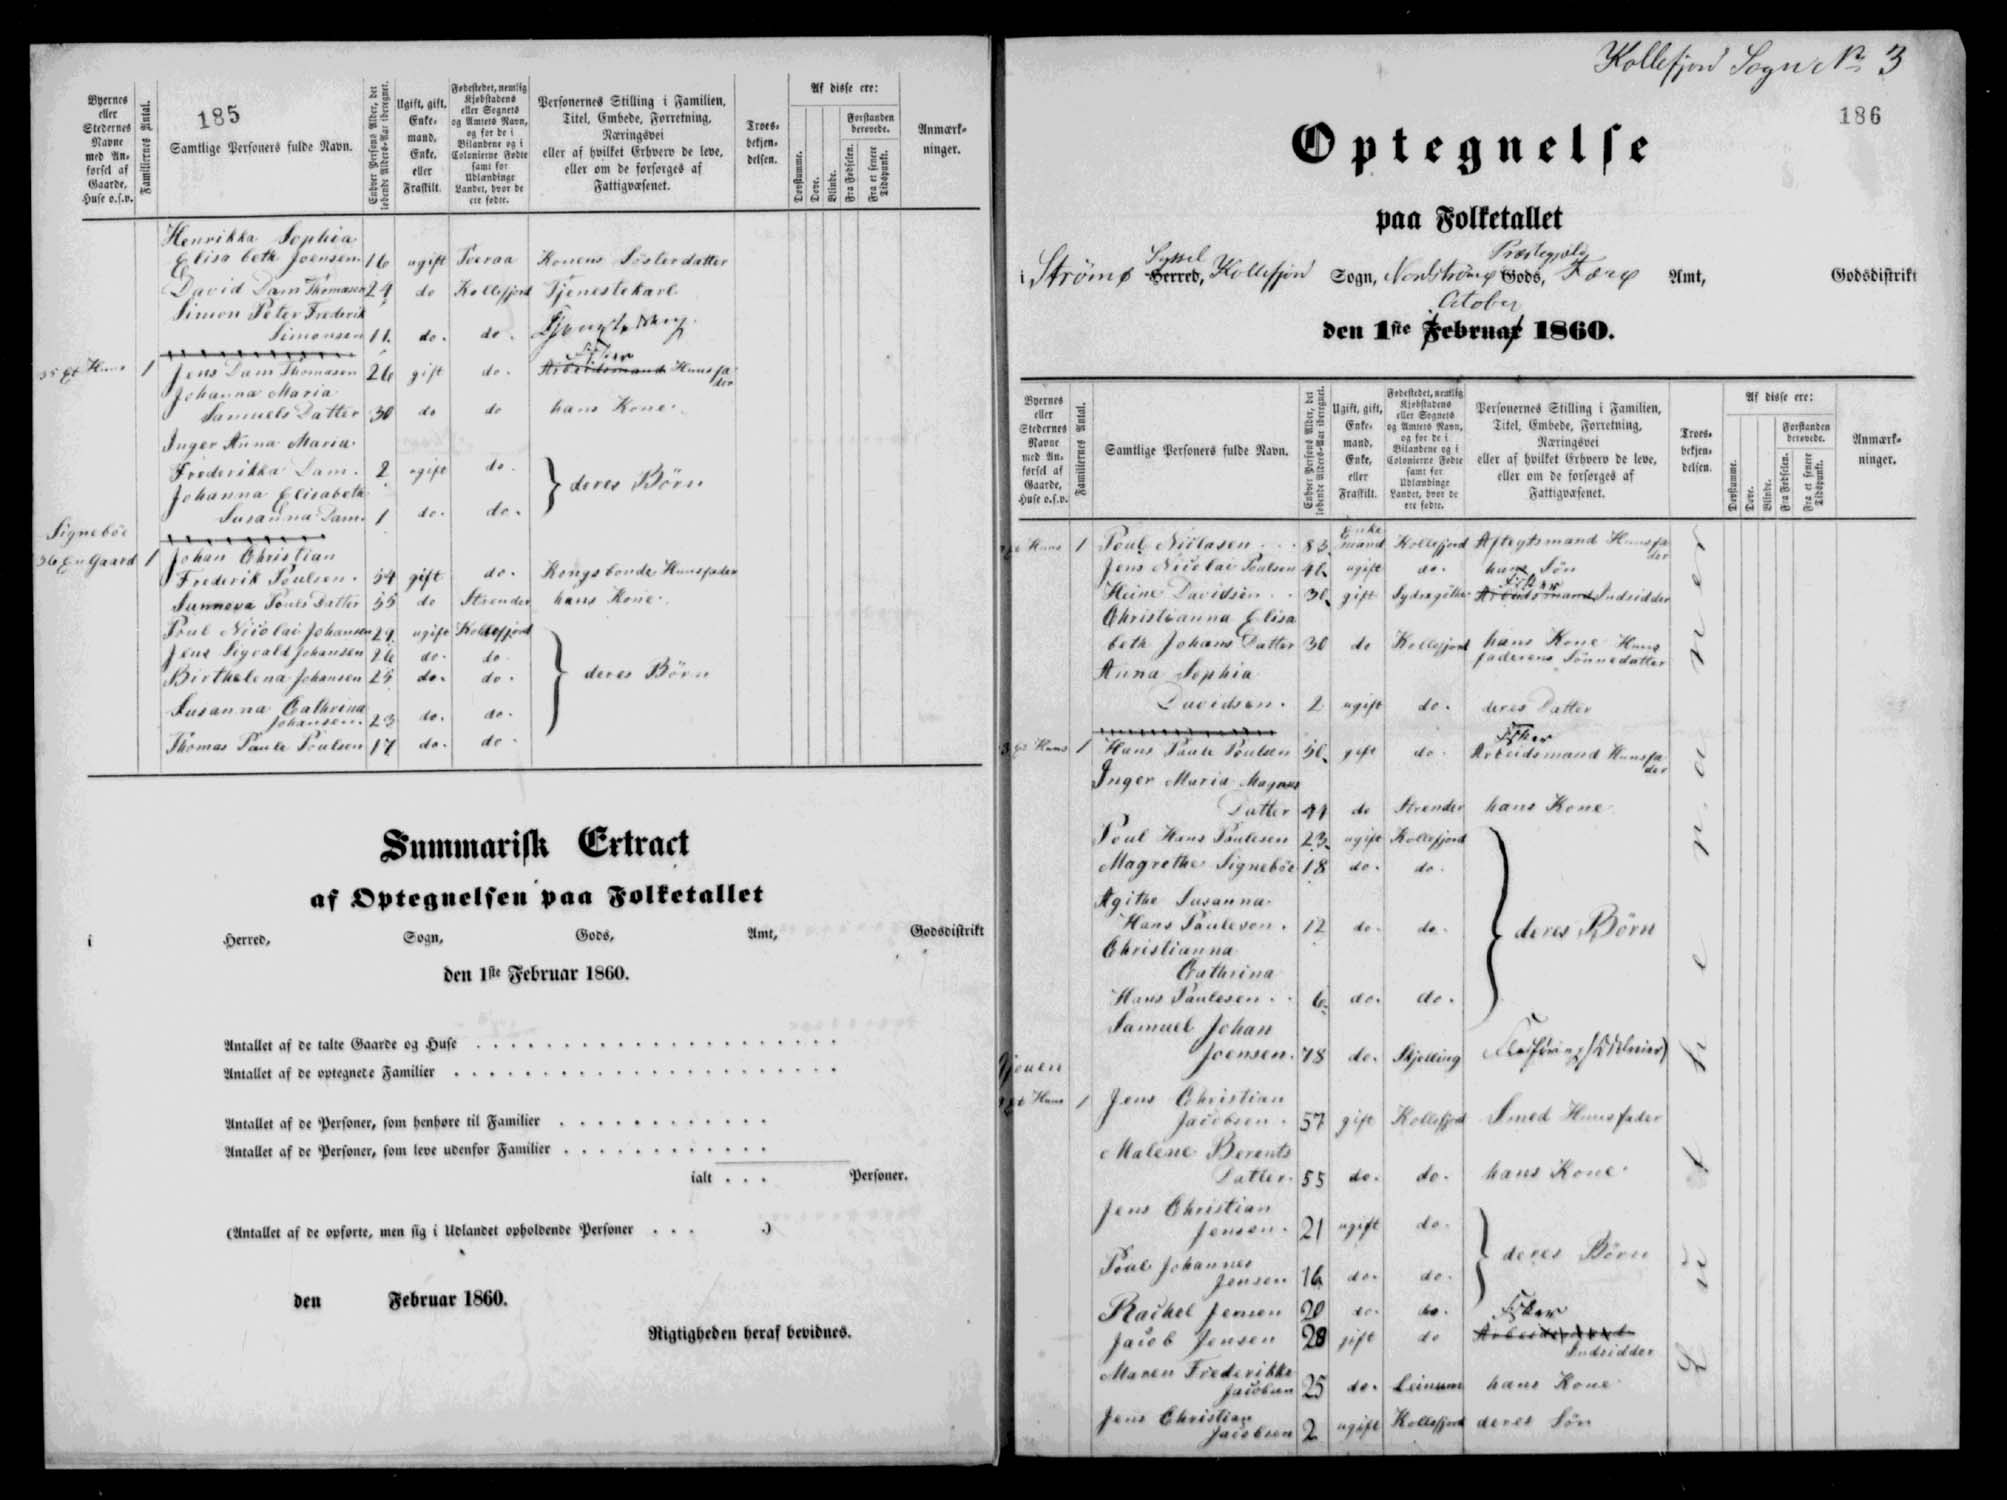 185
Byernes
eller
Stedernes
Navne
med An-
førsel af
Gaarde,
Huse o.s.v.
Familiernes Antal.
Samtlige Personers fulde Navn.
Enhver Persons Alder, det
løbende Alders-Aar iberegnet.
Ugift, gift,
Enke-
mand,
Enke,
eller
Fraskilt.
Fødestedet, nemlig
Kjøbstadens
eller Sognets
og Amtets Navn,
og for de i
Bilandene og i
Colonierne Fødte
samt for
Udlændinge
Landet, hvor de
ere fødte.
Personernes Stilling i Familien,
Titel, Embede, Forretning,
Næringsvei
eller af hvilket Erhverv de leve,
eller om de forsørges af
Fattigvæsenet.
Troes-
bekjen-
delsen.
Af disse ere:
Døvstumme.
Døve.
Blinde.
Forstanden
berøvede.
Fra Fødselen.
Fra et senere
Tidspunkt.
Anmærk-
ninger.
Henrikka Sophia
Elisabeth Joensen 16 ugift Tveraa Konens Søsterdatter
David Dam Thomasen 24 do Kollefjord Tjenestekarl
Simon Peter Frederik
Simonsen 11. do. do.
35 Et Huus 1 Jens Dam Thomasen 26 gift do. Fisker Arbeidsmand Huusfa-
der
Johanna Maria
Samuels Datter 30 do do hans Kone.
Inger Anna Maria
Frederikka Dam. 2 ugift do.
Johanna Elisabeth
Susanna Dam. 1 do. do. deres Børn
Signebøe
36 En Gaard 1 Johan Christian
Frederik Poulsen. 54 gift do. Kongsbonde Huusfader
Sunneva Pouls Datter 55 do Strender hans Kone.
Poul Nicolai Johansen 29 ugift Kollefjord
Jens Sigvald Johansen 26 do. do.
Birthelena Johansen 25 do. do. deres Børn
Susanna Cathrina
Johansen. 23 do. do.
Thomas Paule Poulsen 17 do. do.
Summarisk Extract
af Optegnelsen paa Folketallet
i Herred, Sogn, Gods, Amt, Godsdistrikt
den 1ste Februar 1860.
Antallet af de talte Gaarde og Huse
Antallet af de optegnede Familier
Antallet af de Personer, som henhøre til Familier
Antallet af de Personer, som leve udenfor Familier
ialt . . . Personer.
(Antallet af de opførte, men sig i Udlandet opholdende Personer . . . )
den Februar 1860.
Rigtigheden heraf bevidnes.
Kollefjord Sogn No 3
186
Optegnelse
paa Folketallet
Syssel Præstegjeld
i Strømø Herred, Kollefjord Sogn, Nordstrømø Gods, Færø Amt, Godsdistrikt
October
den 1ste Februar 1860.
Byernes
eller
Stedernes
Navne
med An-
førsel af
Gaarde,
Huse o.s.v.
Familiernes Antal.
Samtlige Personers fulde Navn.
Enhver Persons Alder, det
løbende Alders-Aar iberegnet.
Ugift, gift,
Enke-
mand,
Enke,
eller
Fraskilt.
Fødestedet, nemlig
Kjøbstadens
eller Sognets
og Amtets Navn,
og for de i
Bilandene og i
Colonierne Fødte
samt for
Udlændinge
Landet, hvor de
ere fødte.
Personernes Stilling i Familien,
Titel, Embede, Forretning,
Næringsvei
eller af hvilket Erhverv de leve,
eller om de forsørges af
Fattigvæsenet.
Troes-
bekjen-
delsen.
Af disse ere:
Døvstumme.
Døve.
Blinde.
Forstanden
berøvede.
Fra Fødselen.
Fra et senere
Tidspunkt.
Anmærk-
ninger.
Lutheranere
Et Huus 1 Poul Nicolasen 83 Enkemand Kollefjord Aftegtsmand Huusfa-
der
Jens Nicolai Poulsen ugift do. hans Søn
Heine Davidsen 36 gift Sydregøthe Fisker Arbeidsmand Indsidder
Christianna Elisa
beth Johans Datter 30 do Kollefjord hans Kone Huus
faderens Sønnedatter
Anna Sophia
Davidsen. 2 ugift do. deres Datter
3 Et Huus 1 Hans Paule Poulsen gift do. Fisker Arbeidsmand Huusfa
der
Inger Maria Magnus
Datter 44 do Strender hans Kone
Poul Hans Paulesen 23 ugift Kollefjord
Magrethe Signebøe 18 do. do.
Agithe Susanna
Hans Paulesen. 12 do. do. deres Børn
Christianna
Cathrina
Hans Paulesen. 6 do. do.
Samuel Johan
Joensen. 78 do. Skjelling
Gjouen
Et Huus 1 Jens Christian
Jacobsen. 57 gift Kollefjord Smed Huusfader
Malene Berents
Datter. 55 do. do. hans Kone.
Jens Christian
Jensen. 21 ugift do.
Poul Johannes
Jensen 16 do. do. deres Børn
Rachel Jensen 20 do. do.
Jacob Jensen 28 gift do Fisker Arbeidsmand
Indsidder
Maren Frederikke
Jacobsen 25 do. Leinum hans Kone
Jens Christian
Jacobsen 2 ugift Kollefjord deres Søn